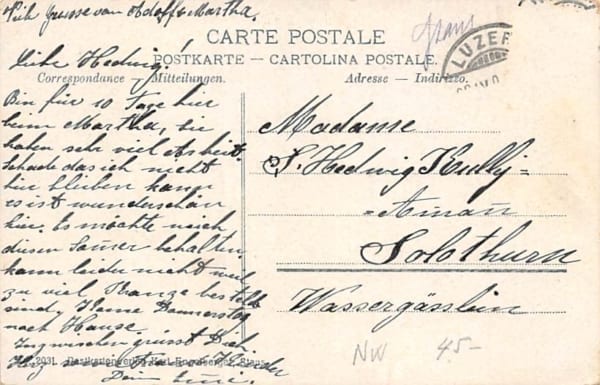 Viele Grüsse von Adolf & Martha.
CARTE POSTALE
POSTKARTE — CARTOLINA POSTALE.
Correspondance — Mitteilungen.
Adresse — Indirizzo.
LUZER
Liebe Hedwig!
Bin für 10 Tage hier
beim Martha, sie
haben sehr viel Arbeit.
Schade das ich nicht
hier bleiben kann
es ist wunderschön
hier. Es möchte mich
dieser behalten
kann leider nicht weil
zu viel bestellt
sind. Komme Donnerstag
nach Hause.
Inzwischen grüsst Dich
Kinder
Dein
Madame
S. Hedwig Kully-
Amann
Solothurn
Wassergässlein
2031. Postkartenverlag Karl Engelberger, Stans
NW 45-